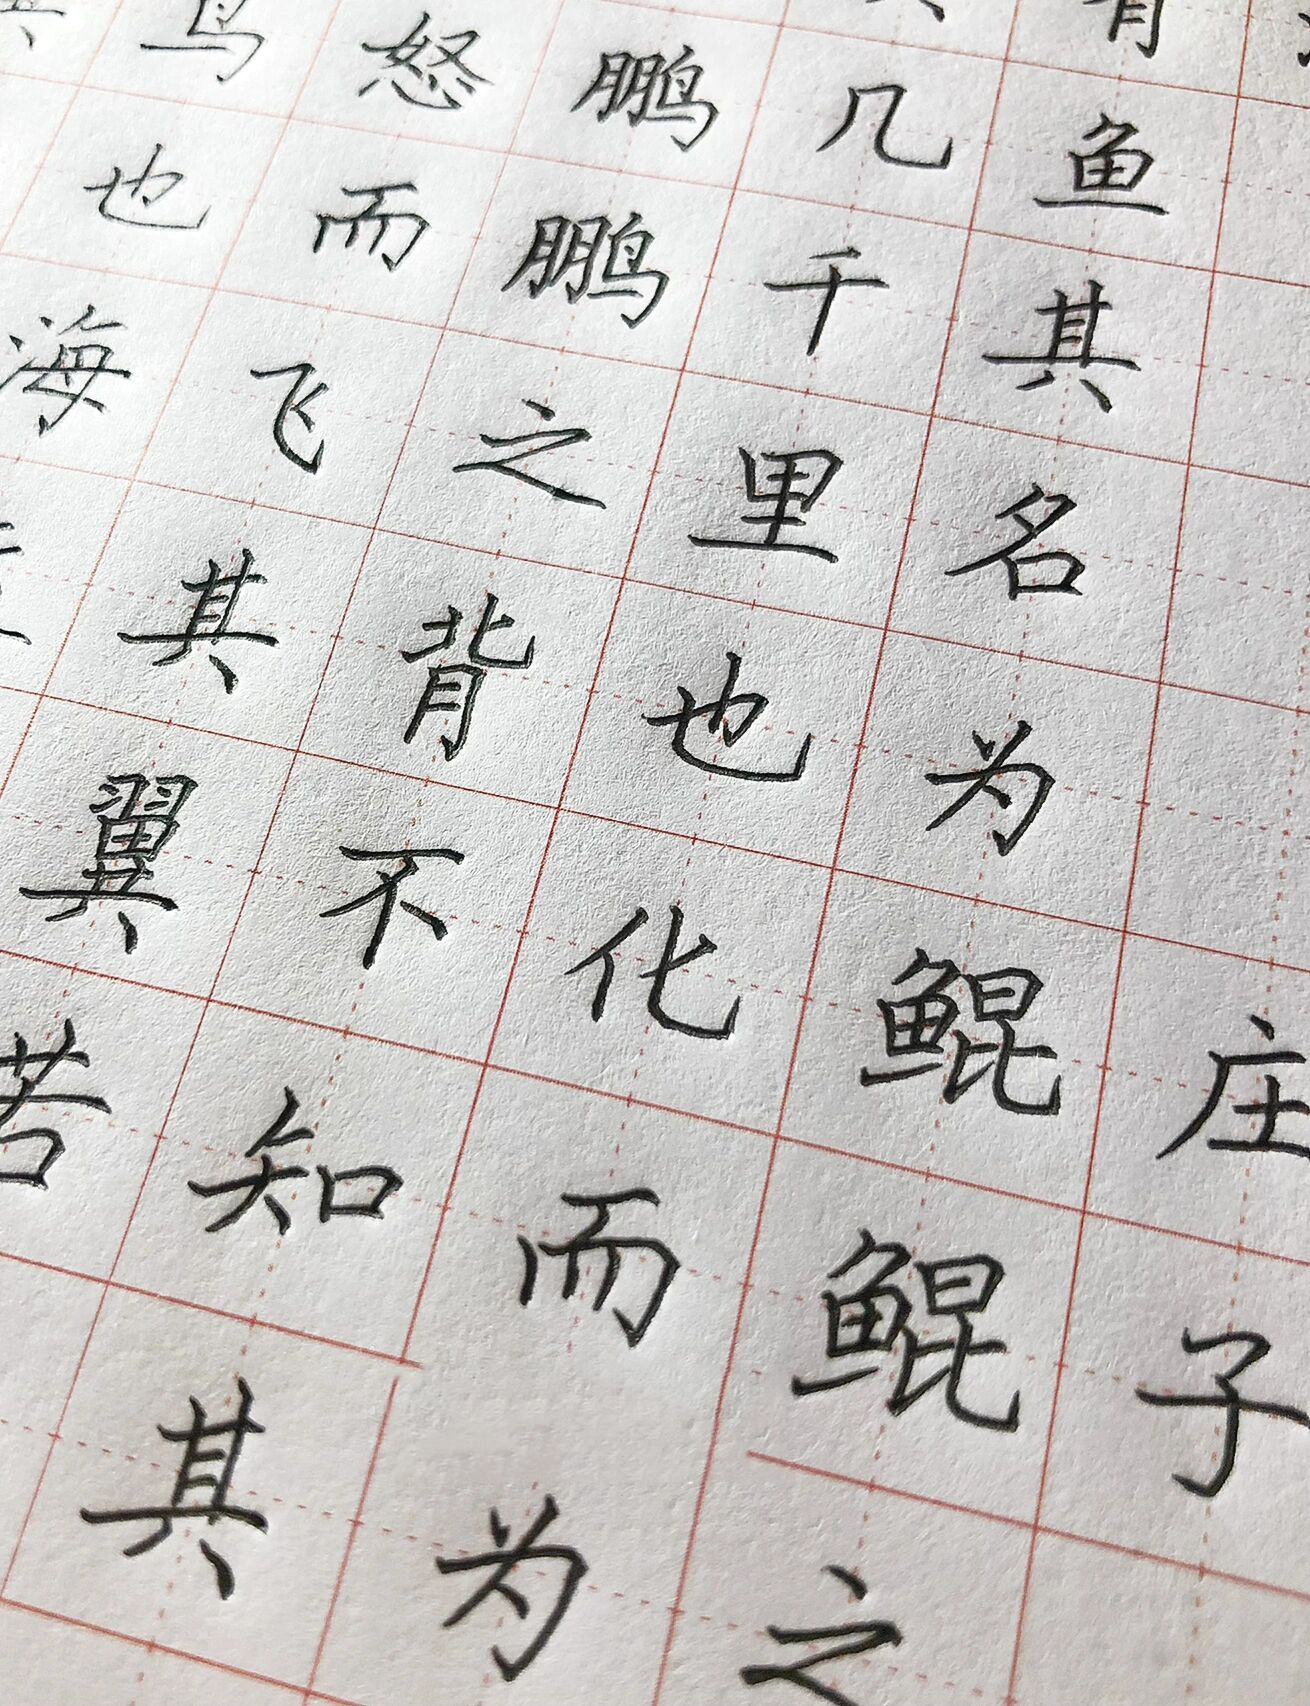 庄子
鱼其名为鲲鲲之
几千里也化而为
鹏鹏之背不知其
怒而飞其翼若
鸟也海